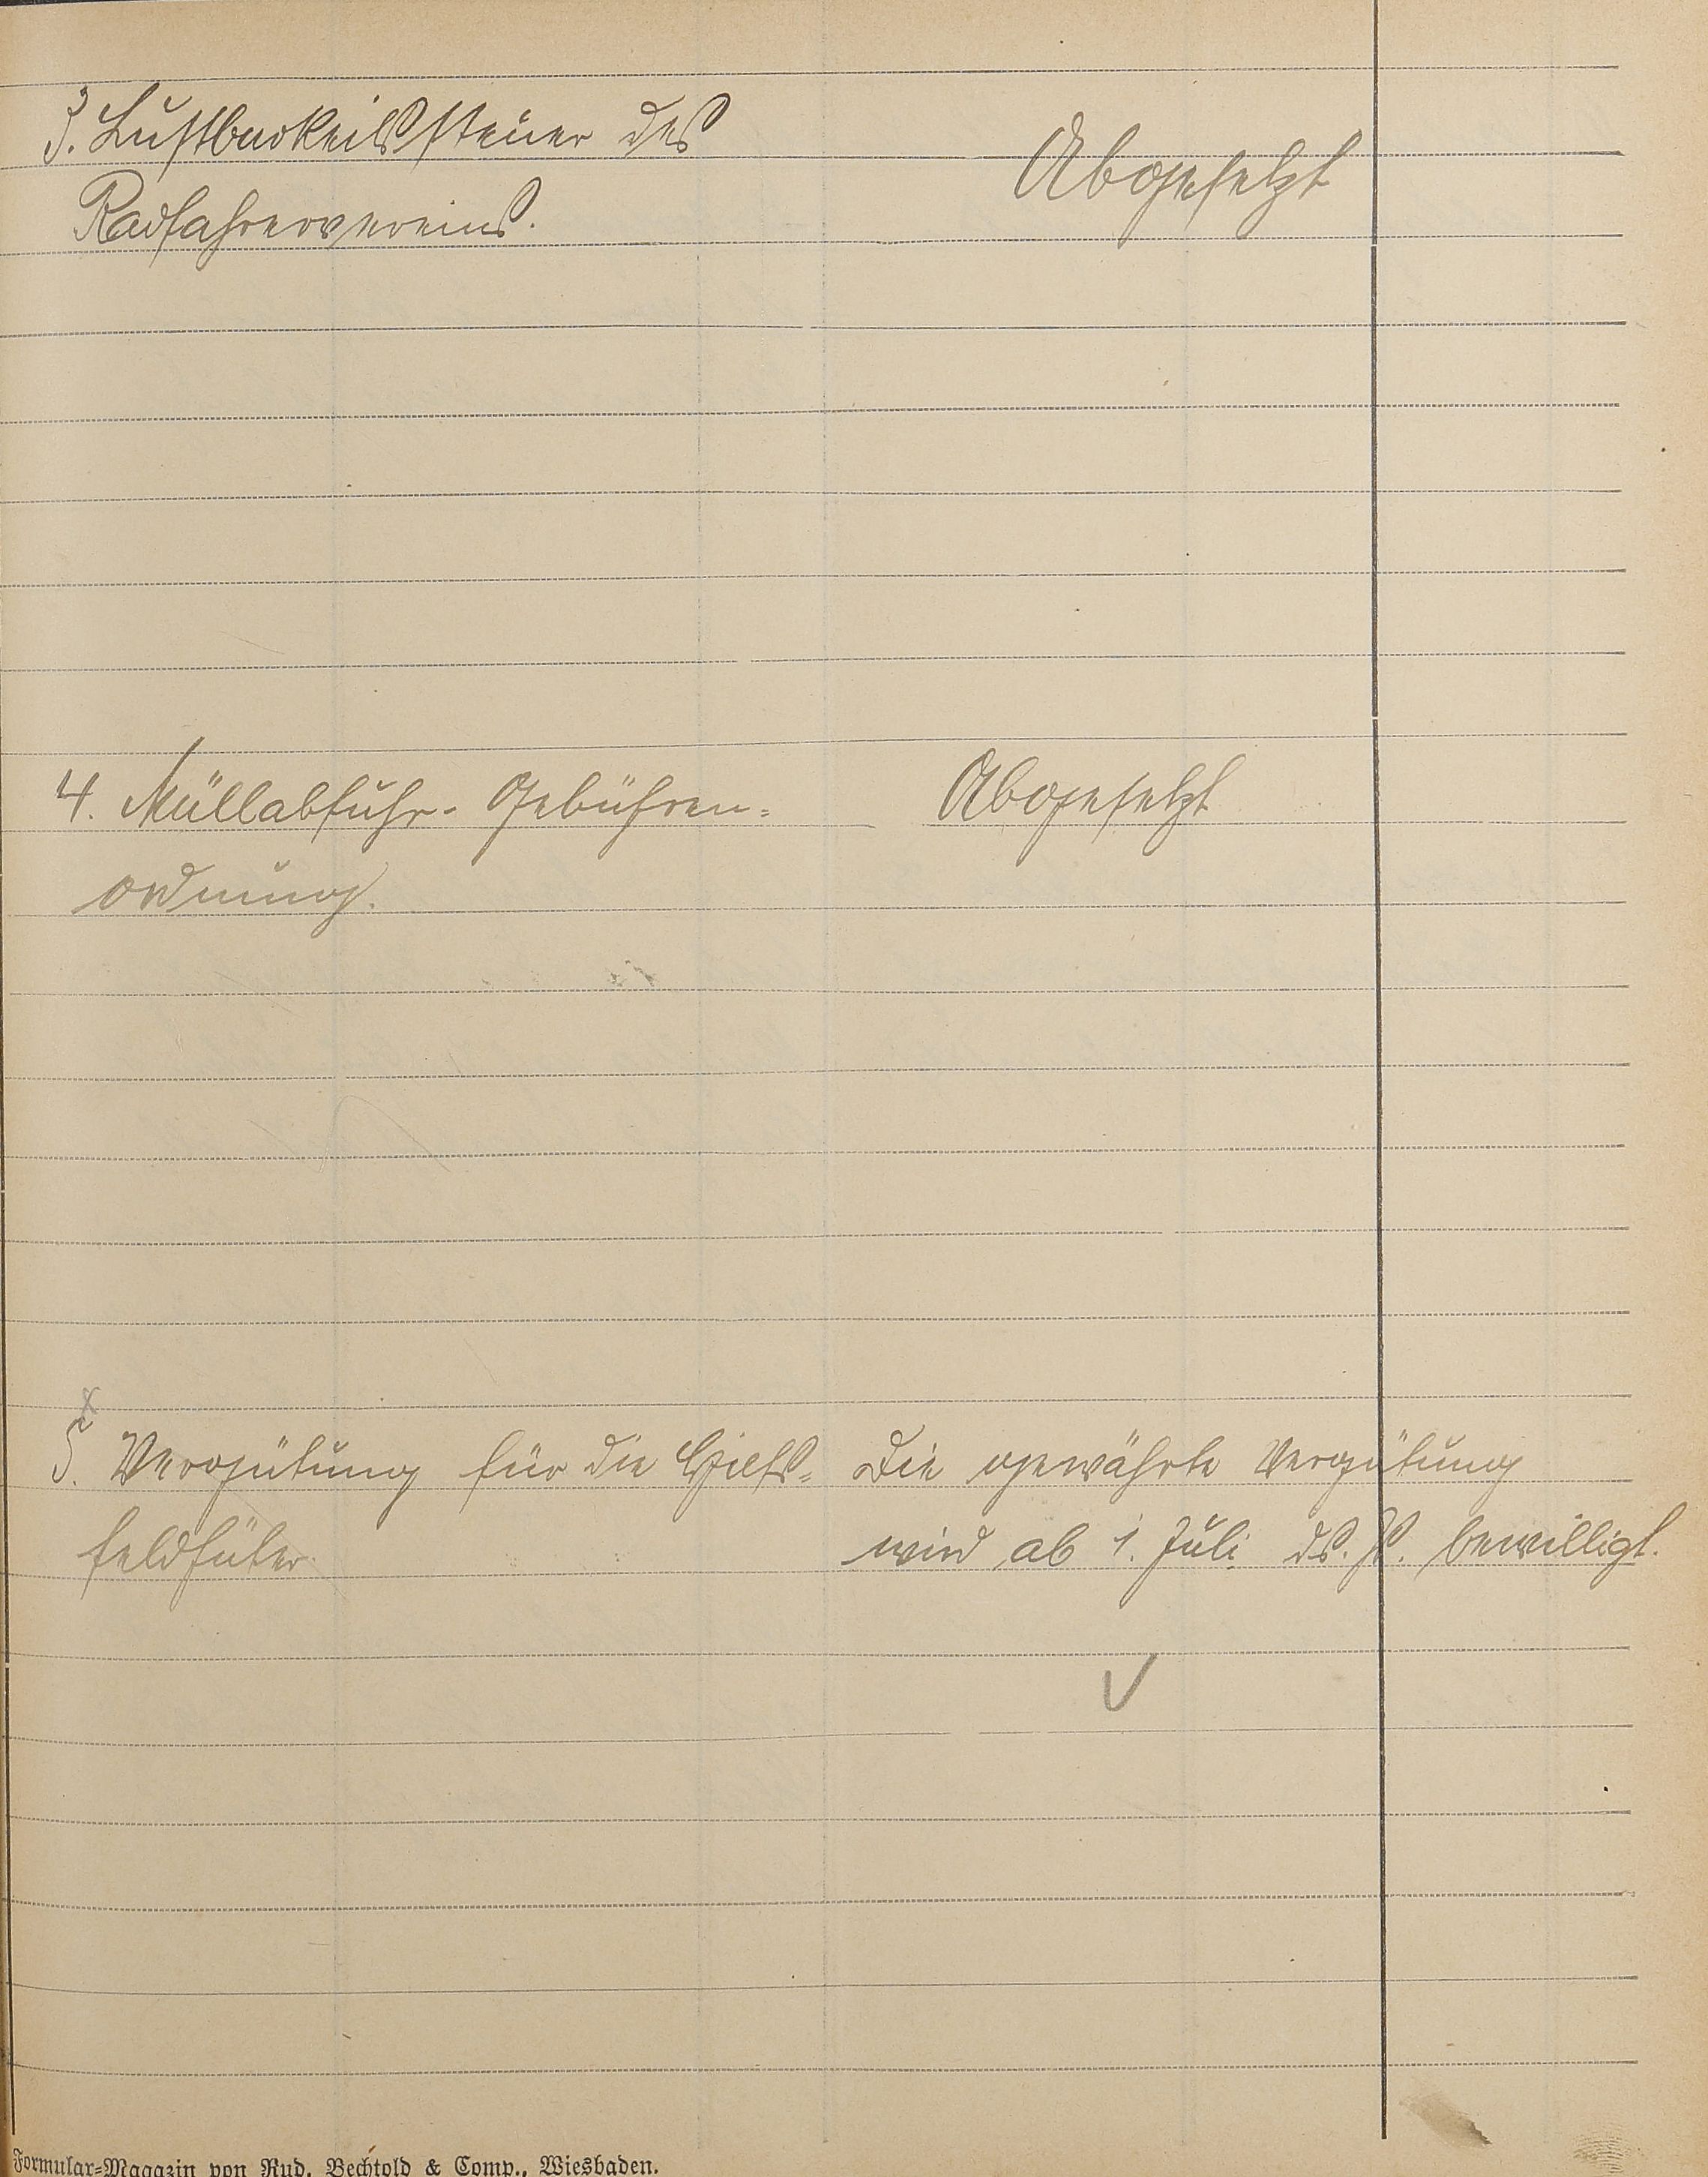 3. Lustbarkeitssteuer des
Radfahrervereins.
Abgesetzt
4. Müllabfuhr-Gebühren-
ordnung.
Abgesetzt
5. Vergütung für die Hilfs-
feldhüter.
Die gewährte Vergütung
wird ab 1. Juli ds. Js. bewilligt.
Formular-Magazin von Rud. Bechtold & Comp., Wiesbaden.